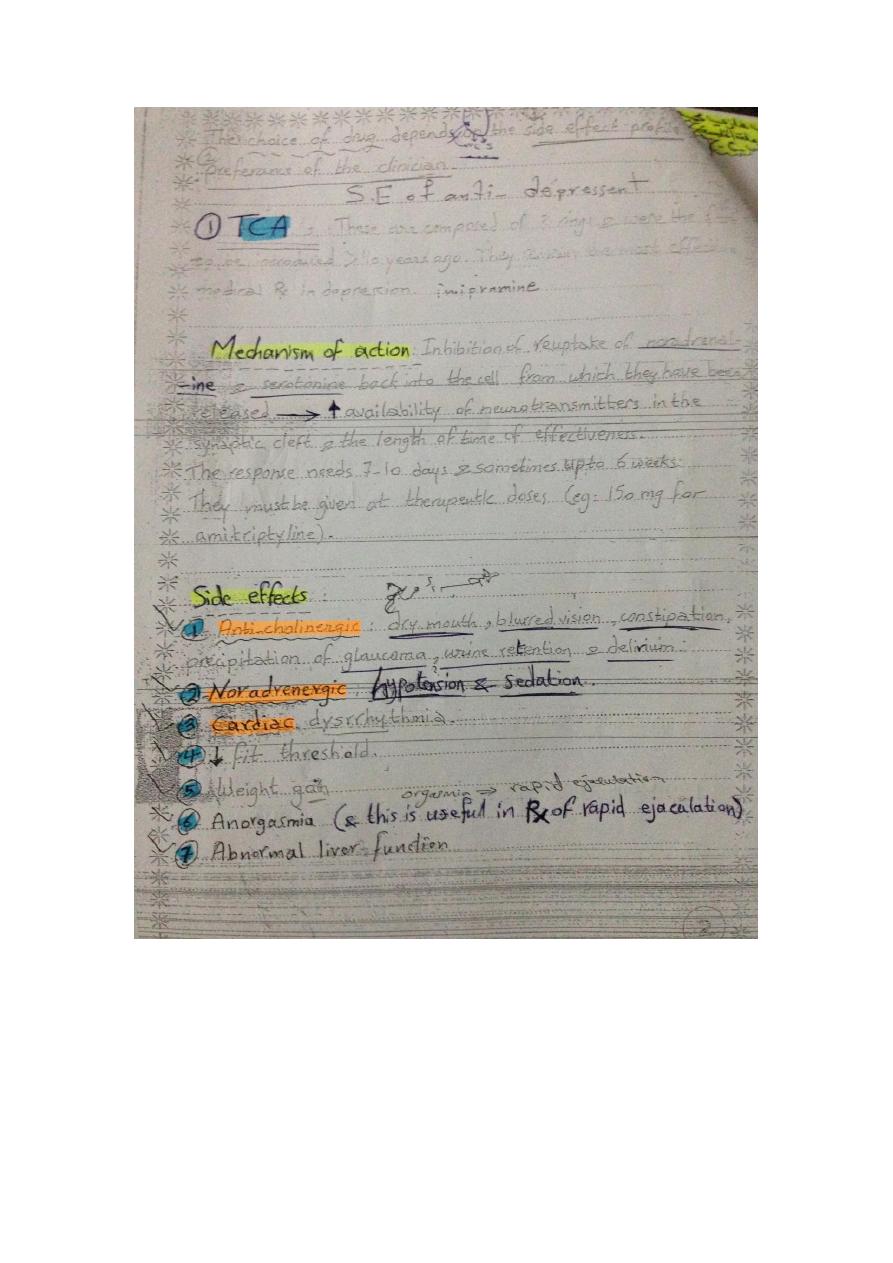 The choice of drug depends on the side effect profile
preferance of the clinician.
S.E of anti-depressent
① TCA : These are composed of 3 rings & were the
to be introduced > 40 years ago. They remain the most effective
medical Rx in depression. imipramine
Mechanism of action: Inhibition of reuptake of noradrenal-
-ine & serotonine back into the cell from which they have been
released → ↑ availability of neurotransmitters in the
synaptic cleft & the length of time of effectiveness.
The response needs 7-10 days & sometimes upto 6 weeks.
They must be given at therapeutic doses (eg: 150 mg for
amitriptyline).
Side effects :
① Anti-cholinergic : dry mouth, blurred vision, constipation,
precipitation of glaucoma, urine retention & delirium.
② Noradrenergic : hypotension & sedation.
③ Cardiac dysrrhythmia.
④ ↓ fit threshold.
⑤ Weight gain
orgasmia ⇒ rapid ejaculation
⑥ Anorgasmia (& this is useful in Rx of rapid ejaculation)
⑦ Abnormal liver function
2